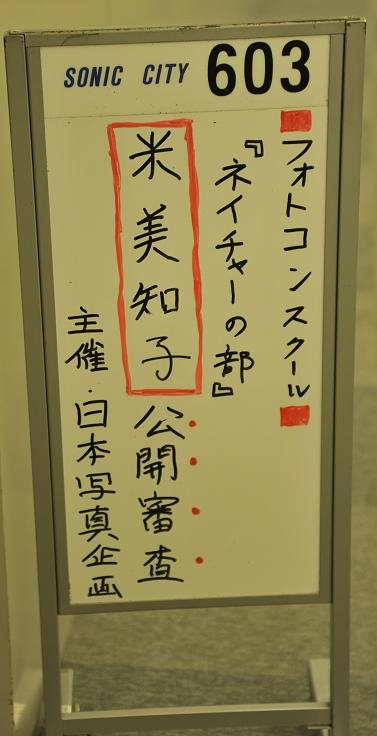 SONIC CITY 603
フォトコンスクール
『ネイチャーの部』
米美知子公開審査
主催・日本写真企画